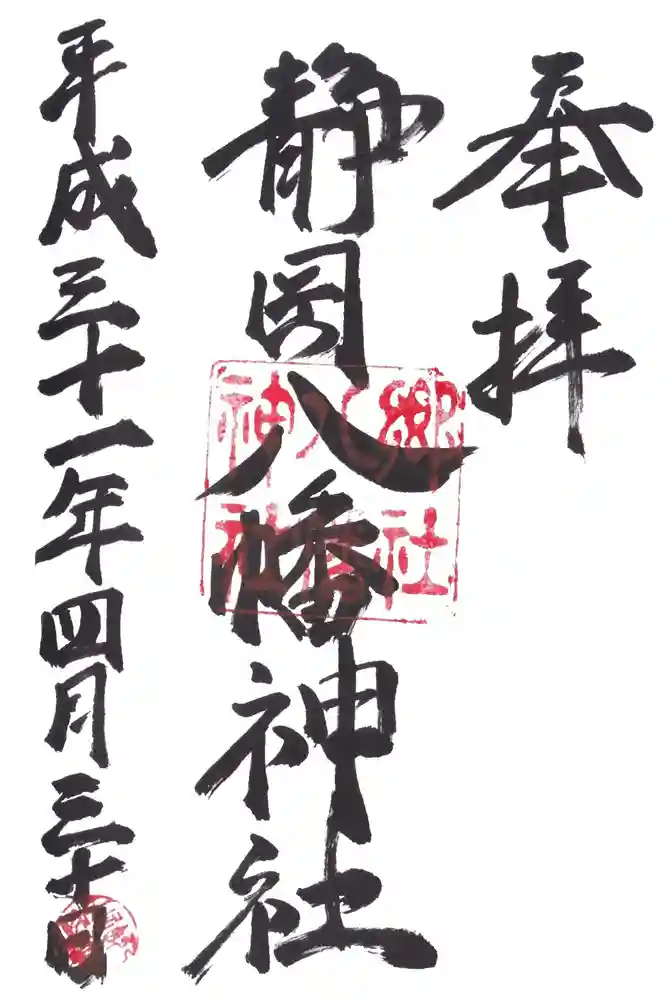 奉拝
静岡八幡神社
郷社
八幡
神社
平成三十一年四月三十日